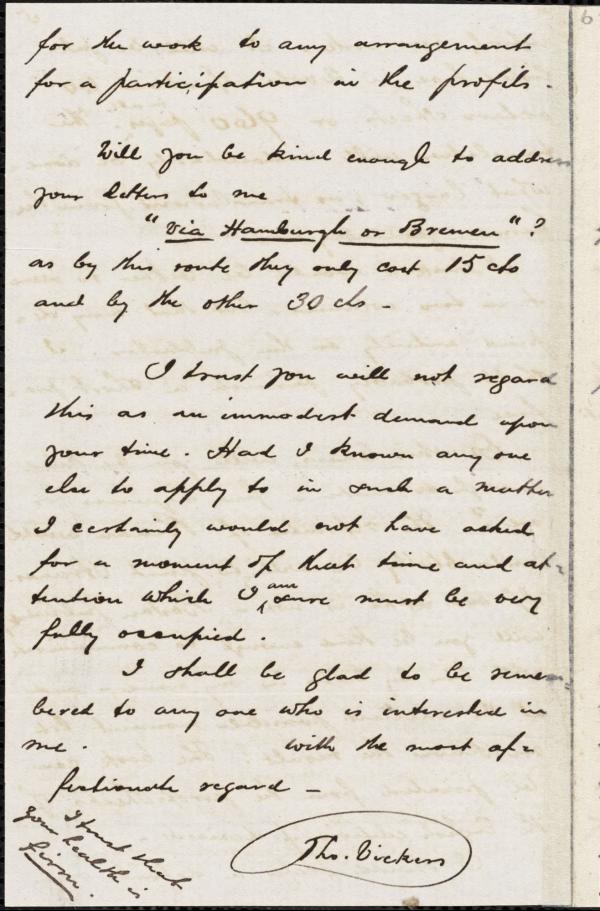 for the work to any arrangement
for a participation in the profits.
Will you be kind enough to address
your letters to me
"via Hamburgh or Bremen"?
as by this route they only cost 15 cts
and by the other 30 cts -
I trust you will not regard
this as an immodest demand upon
your time. Had I known any one
else to apply to in such a matter
I certainly would not have asked
for a moment of that time and at=
tention which I am sure must be very
fully occupied.
I shall be glad to be remem=
bered to any one who is interested in
me. With the most af=
fectionate regard -
Tho. Vickers
I trust that
your health is
firm.